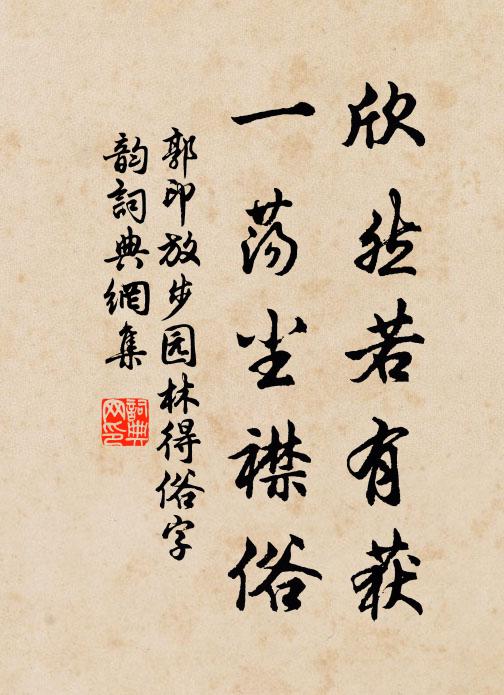 欣然若有获
一荡尘襟俗
郭印放步园林得俗字
韵词典網集
詞典网印